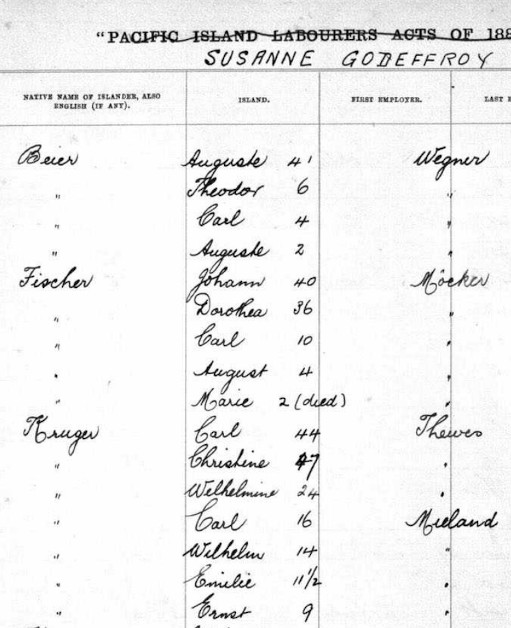 "PACIFIC ISLAND LABOURERS ACTS OF 188
SUSANNE GODEFFROY
NATIVE NAME OF ISLANDER, ALSO ENGLISH (IF ANY). ISLAND. FIRST EMPLOYER. LAST E
Beier Auguste 41 Wegner
" Theodor 6 "
" Carl 4 "
" Auguste 2 "
Fischer Johann 40 Möcker
" Dorothea 36 "
" Carl 10 "
" August 4 "
" Marie 2 (died) "
Kruger Carl 44 Thewes
" Christine 47 "
" Wilhelmine 24 "
" Carl 16 Mieland
" Wilhelm 14 "
" Emilie 11 1/2 "
" Ernst 9 "